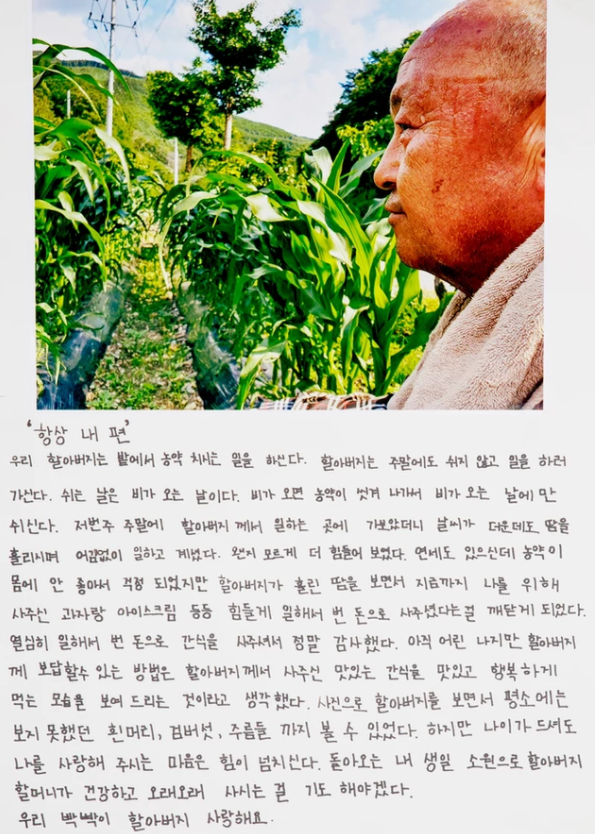 '항상 내 편'
우리 할아버지는 밭에서 농약 치시는 일을 하신다. 할아버지는 주말에도 쉬지 않고 일을 하러
가신다. 쉬는 날은 비가 오는 날이다. 비가 오면 농약이 씻겨 나가서 비가 오는 날에만
쉬신다. 저번주 주말에 할아버지께서 일하는 곳에 가보았더니 날씨가 더운데도 땀을
흘리시며 어김없이 일하고 계셨다. 왠지 모르게 더 힘들어 보였다. 연세도 있으신데 농약이
몸에 안 좋아서 걱정 되었지만 할아버지가 흘린 땀을 보면서 지금까지 나를 위해
사주신 과자랑 아이스크림 등등 힘들게 일해서 번 돈으로 사주셨다는걸 깨닫게 되었다.
열심히 일해서 번 돈으로 간식을 사주셔서 정말 감사했다. 아직 어린 나지만 할아버지
께 보답할수 있는 방법은 할아버지께서 사주신 맛있는 간식을 맛있고 행복하게
먹는 모습을 보여 드리는 것이라고 생각했다. 사진으로 할아버지를 보면서 평소에는
보지 못했던 흰머리, 검버섯, 주름들 까지 볼 수 있었다. 하지만 나이가 드셔도
나를 사랑해 주시는 마음은 힘이 넘치신다. 돌아오는 내 생일 소원으로 할아버지
할머니가 건강하고 오래오래 사시는 걸 기도 해야겠다.
우리 빡빡이 할아버지 사랑해요.